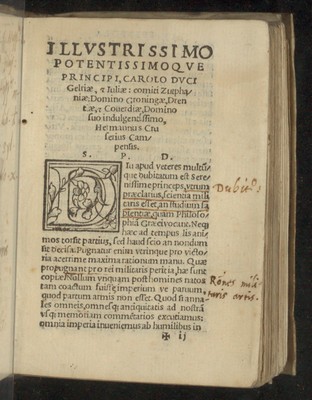 ILLVSTRISSIMO
POTENTISSIMOQVE
PRINCIPI, CAROLO DVCI
Geldriæ, & Iuliæ: comiti Zutpha
niæ: Domino Groningæ, Dren
tæ, & Couerdiæ, Domino
suo indulgentissimo,
Hermannus Cru
serius Cam
pensis.
S. P. D.
Diu apud veteres multũ
que dubitatum est Sere
nissime princeps, vtrum
præclarius, scientia mili
taris esset, an studium sa
pientiæ, quam Philoso
phiã Græci vocant. Neq;
hæc ad tempus lis ani-
mos torsit partium, sed haud scio an nondum
sit decisa. Pugnatur enim vtrinque pro victo
ria acerrime maximis rationum manu. Quæ
pro pugnant pro rei militaris peritia, hæ sunt
copiæ. Nullum vnquam post homines natos
tam coactum fuisse imperium ve paruum,
quod partum armis non esset. Quod si anna
les omneis, omnesq; antiquitatis ad nostrã
vsq; memoriam commẽtarios excutiamus:
omnia imperia inueniemus ab humilibus in
✠ ij
Dubitõ
Rõnes mili
taris artis.